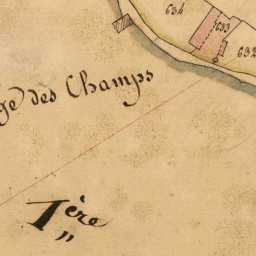 634
633
632
ge des Champs
1ère
"